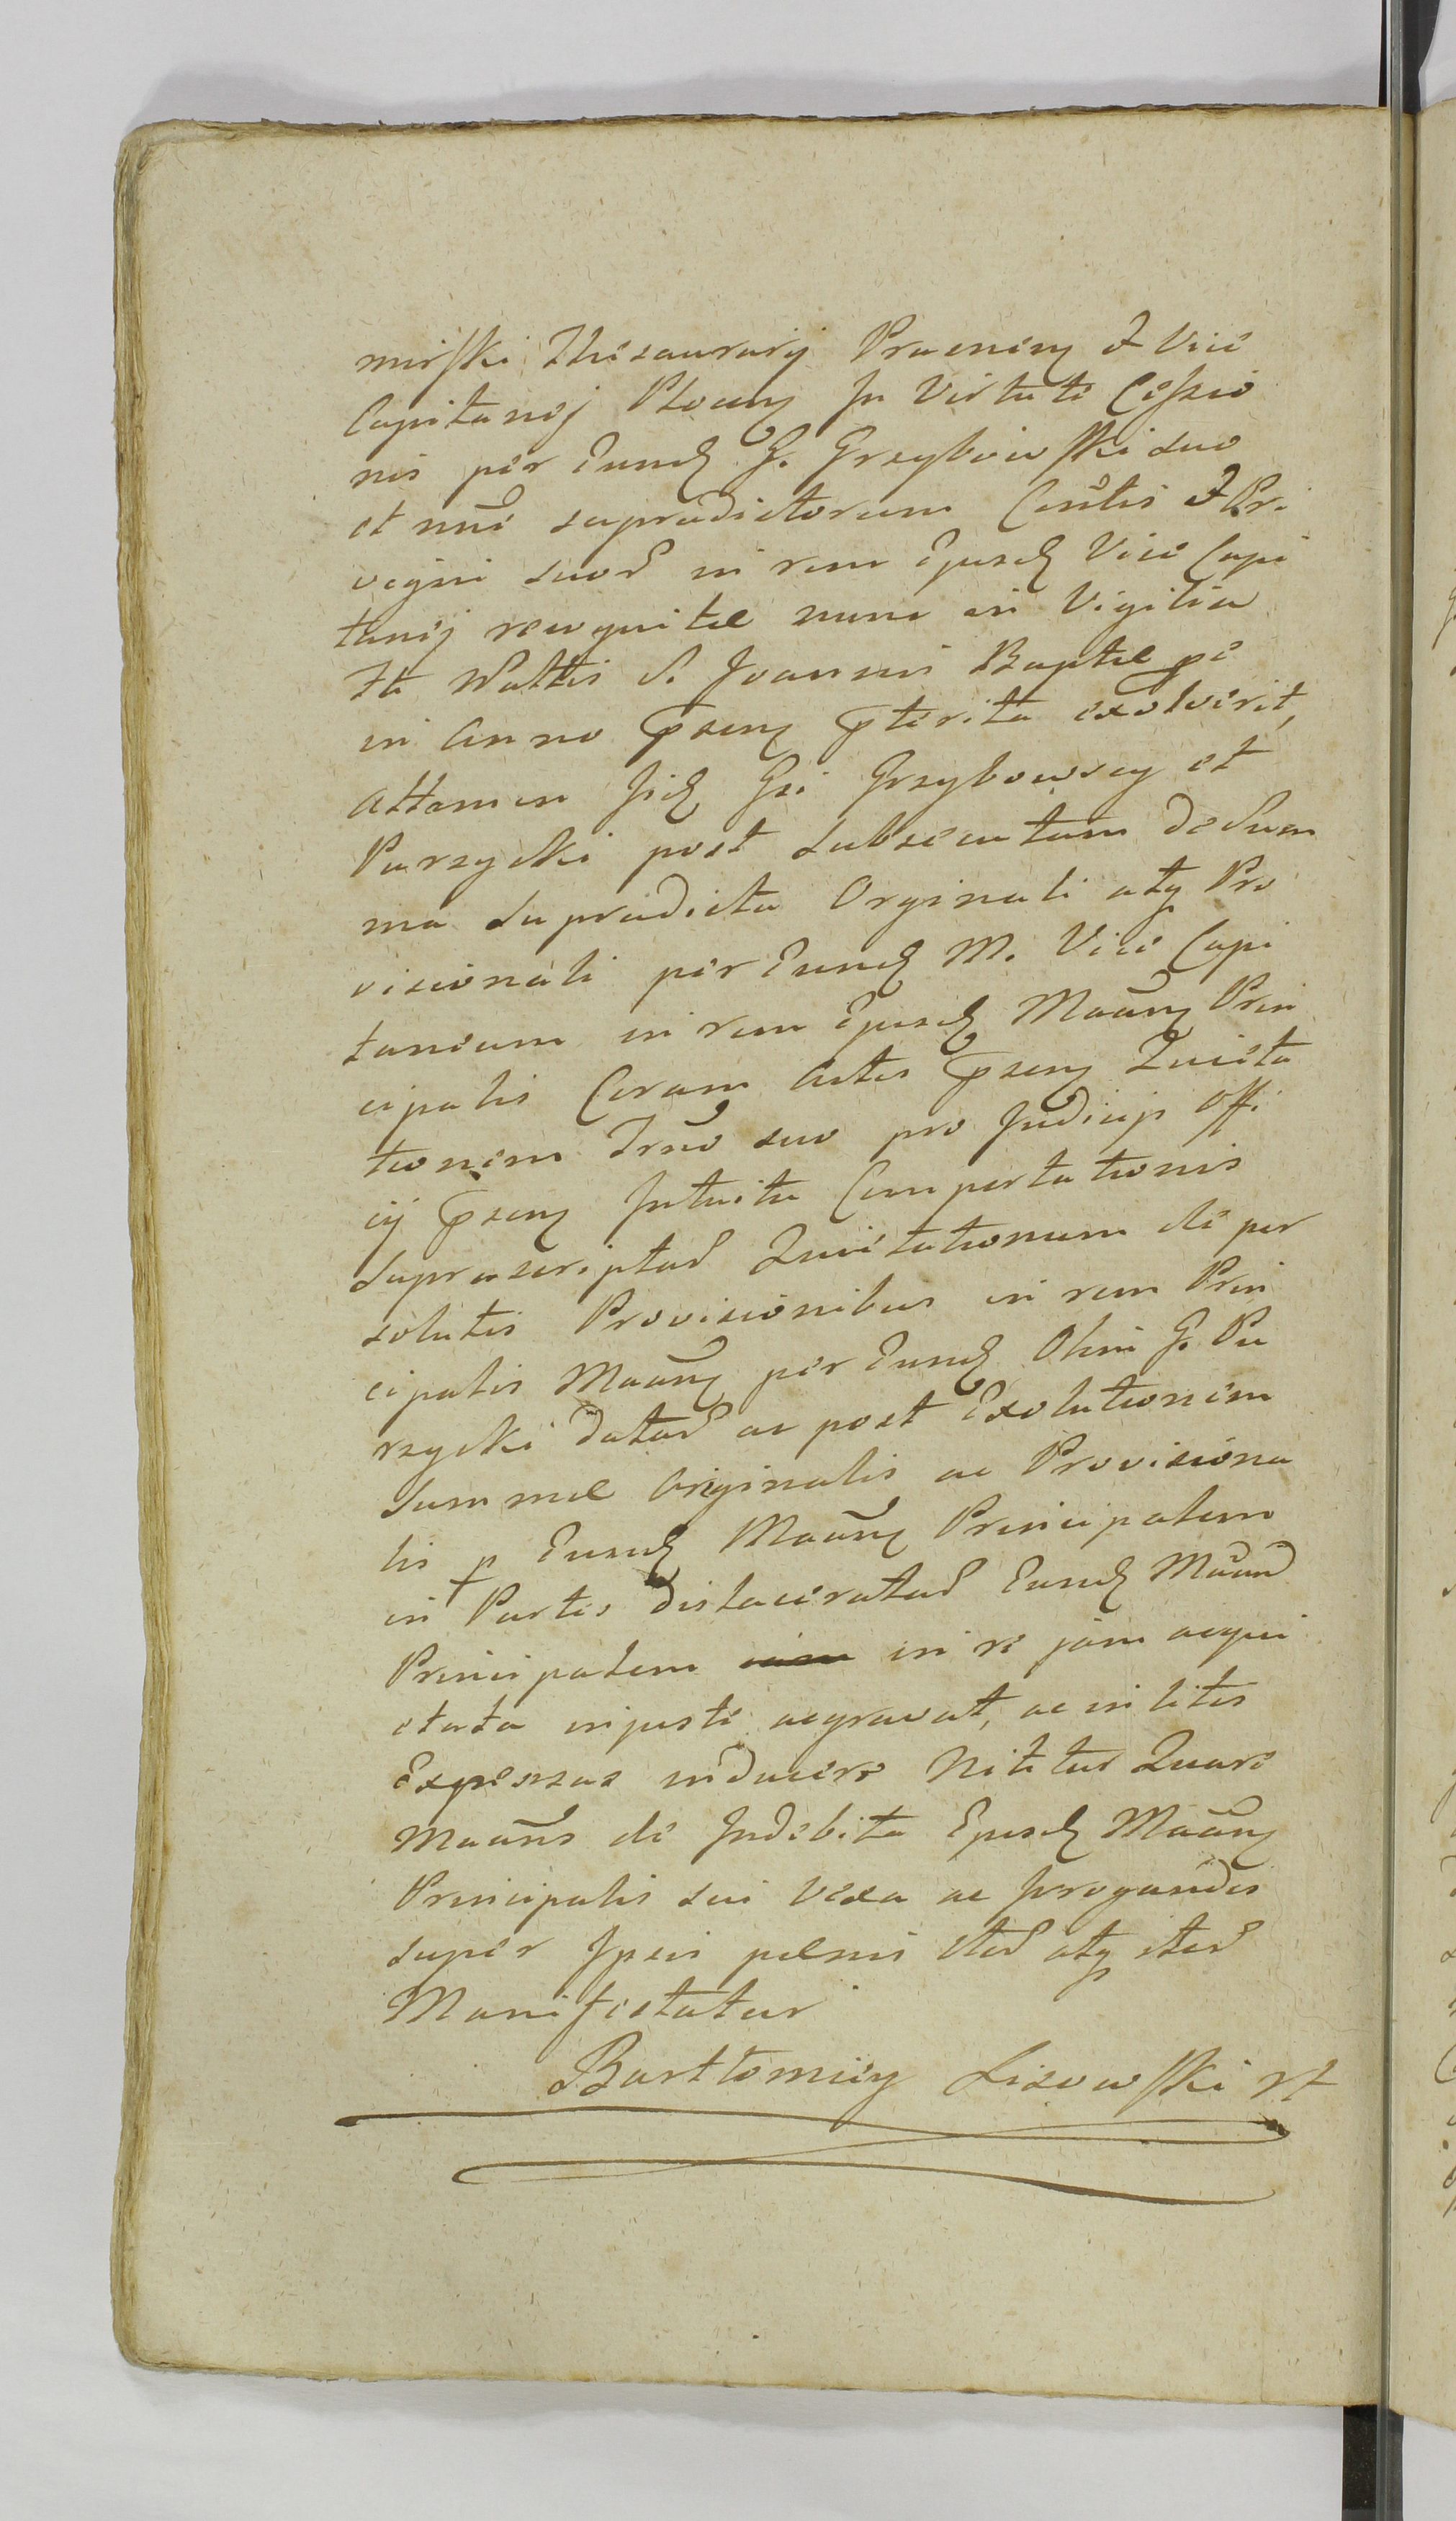 mirski Thesaurarij Praenen & Vice
Capitanej Ploceń In Virtute Cessio
nis per Eund G. Grzybowski suo
et nne supradictorum Consortis & Pri
vigni suor in rem Ejusd Vice Capi
tanej recognitae nunc in Vigilia
Fti Nattis S. Joannis Baptae pe
in Anno psen pterita exolverit,
Attamen Jid Gsi Grzybowscy et
Purzycki post subsecutam de Sum
ma supradicta Orginali atq Pro
visionali per Eund M. Vice Capi
taneum in rem Ejusd Maan Prin
cipalis Coram Actis psen Quieta
tionem Trno suo pro Judicijs Offi
cij psen Intuitu Comportationis
suprascriptar Quietationum de per
solutis Provisionibus in rem Prin
cipalis Maan per Eund Olim G. Pu
rzycki datar ac post Exolutionem
Summae Originalis ac Provisiona
lis p Eund Maan Principalem
in Partes dislaceratar Eund Maan
Principalem in re jam acqui
etata injuste aggravat, ac in lites
Expensas inducere Nititur Quare
Maans de Indebita Ejusd Maan
Principalis sui Vexa ac Irrogandis
super Ipsis paenis iter atq iter
Manifestatur
Bartłomiey Lisowski